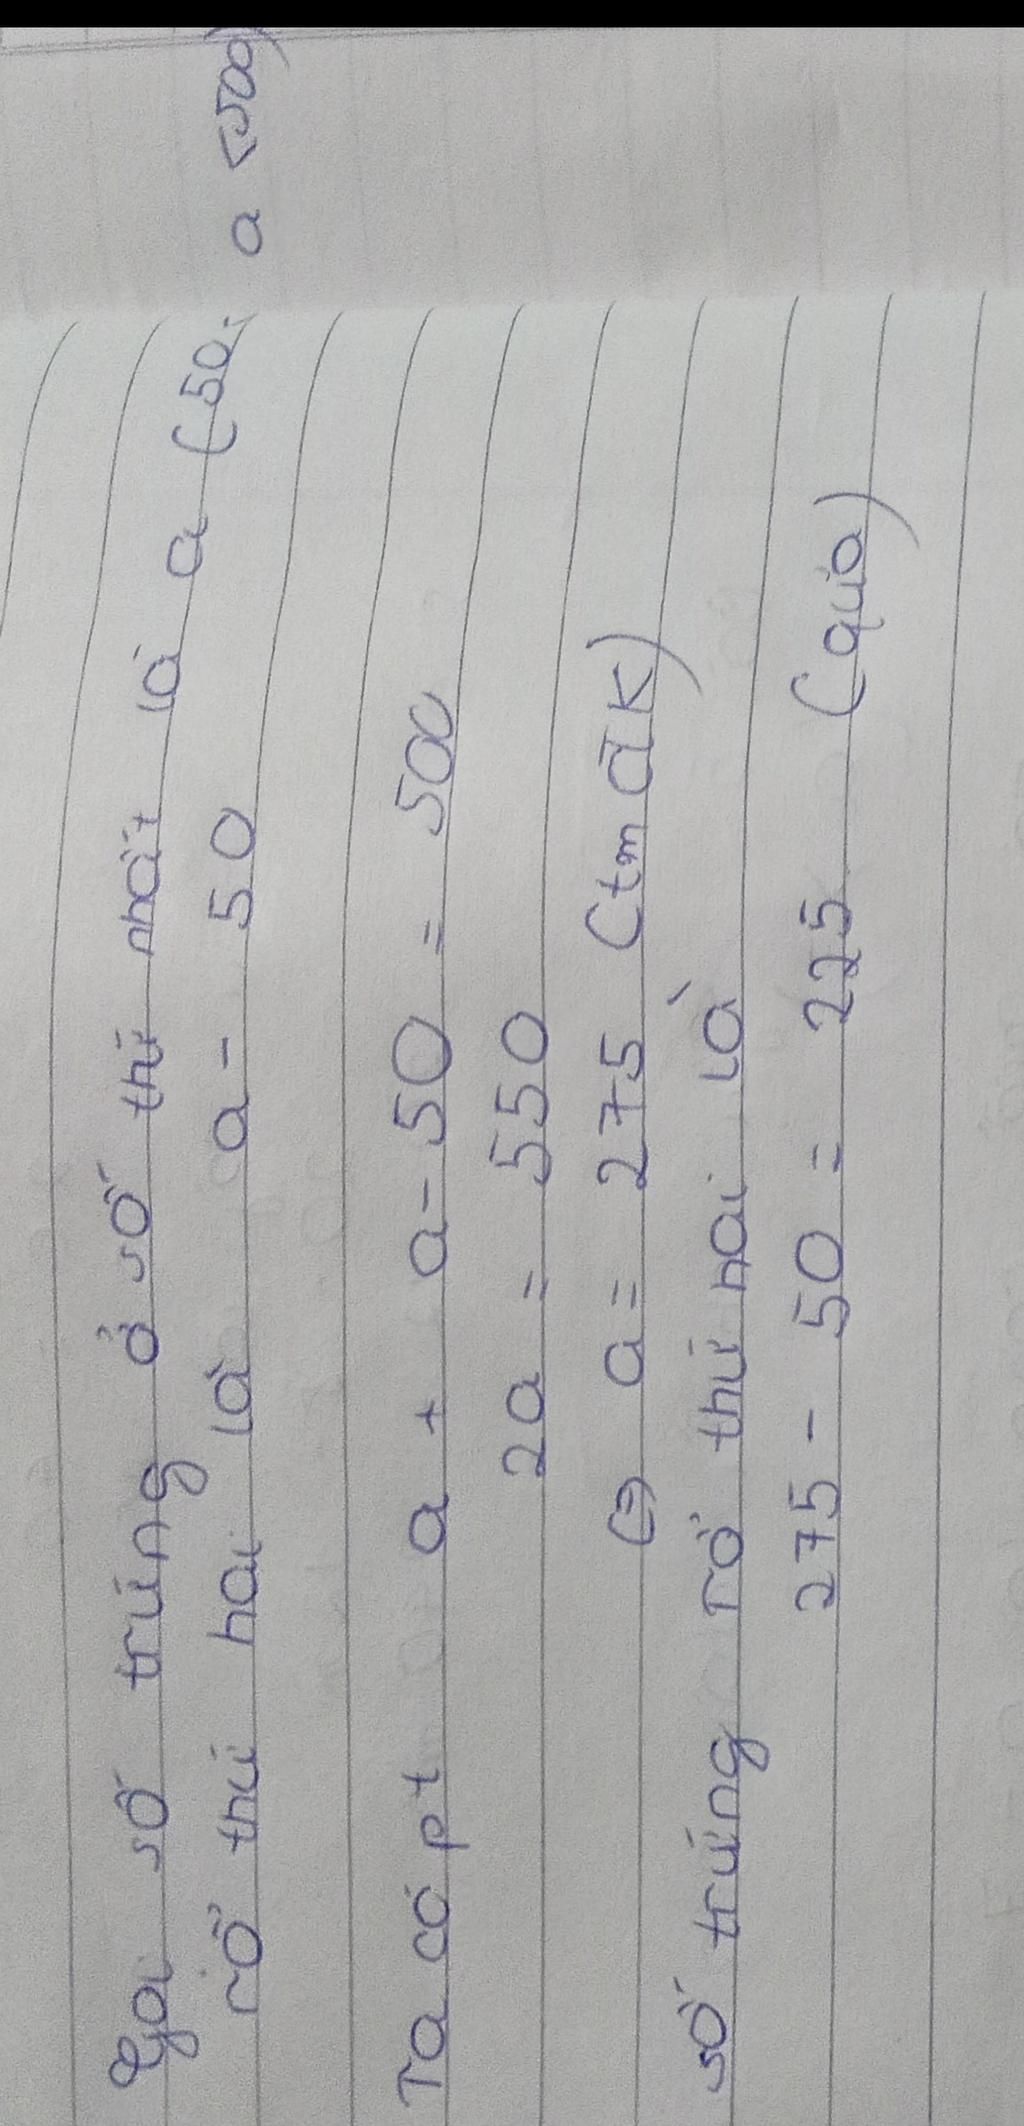 Gọi số trứng ở số thứ nhất là a (50 < a < 500)
rổ thứ hai là a - 50
Ta có pt a + a - 50 = 500
2a = 550
(=) a = 275 (tmđk)
số trứng rổ thứ hai là
275 - 50 = 225 (quả)